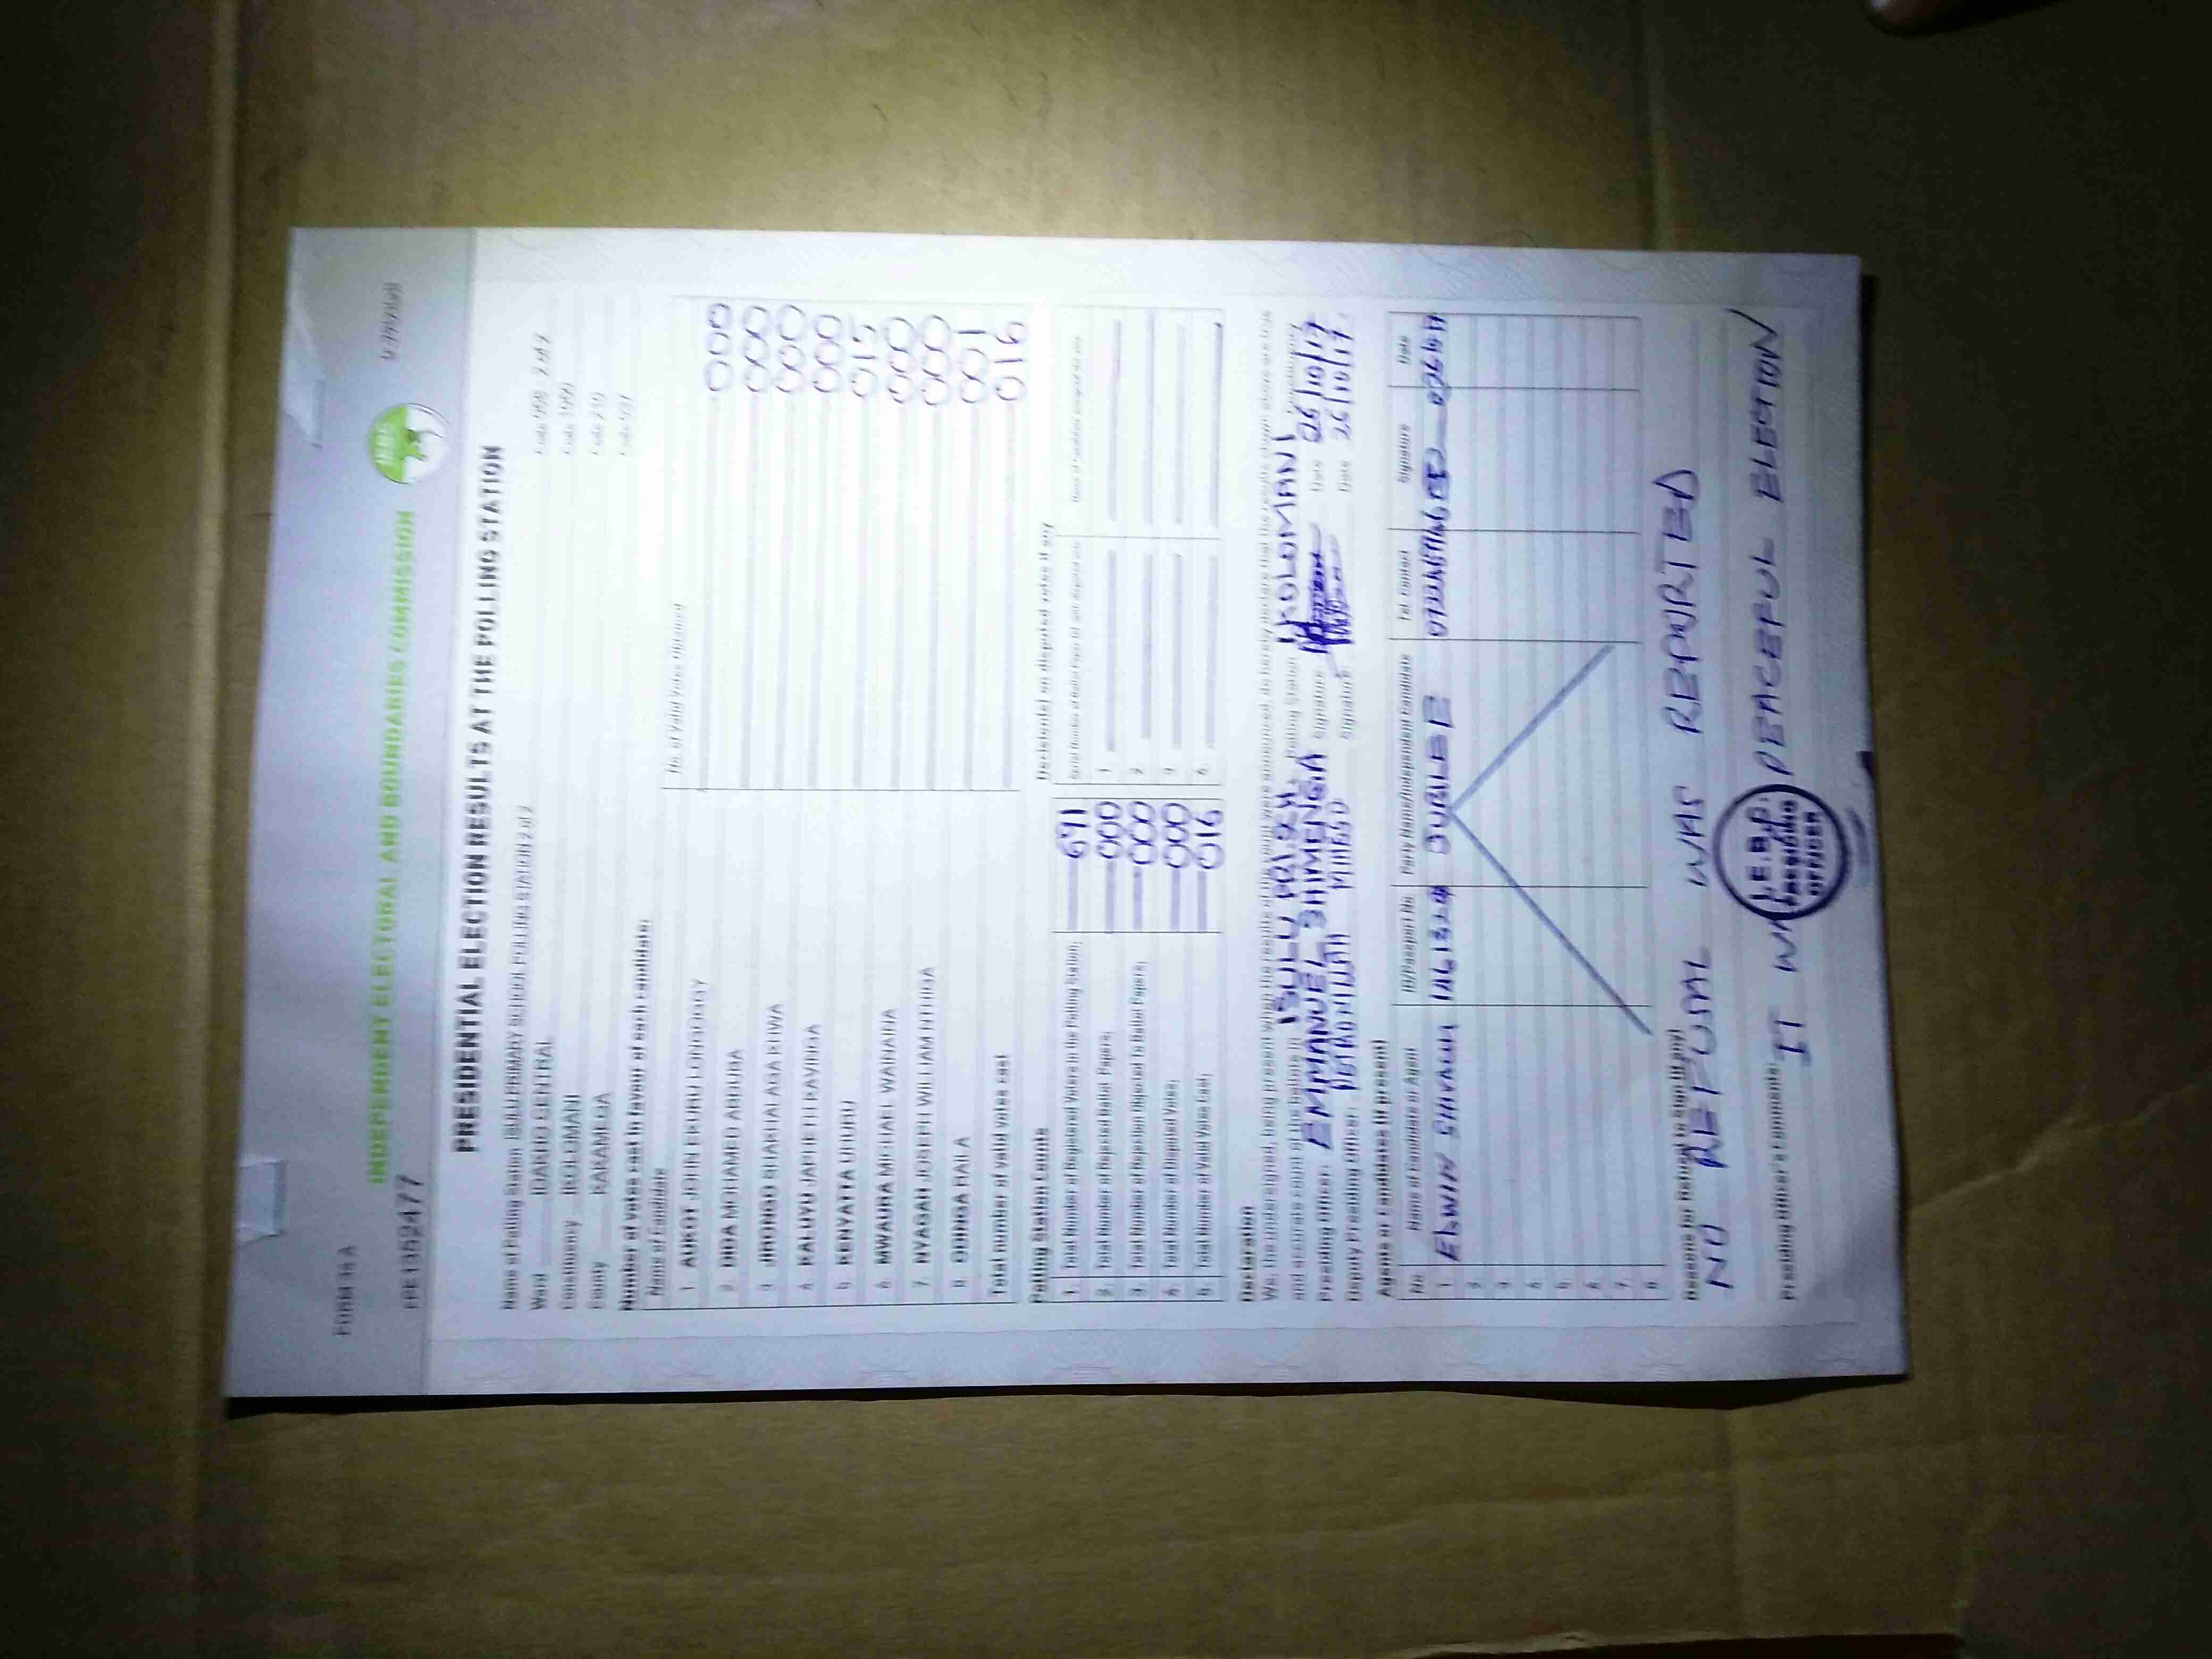 FORM 34A
INDEPENDENT ELECTORAL AND BOUNDARIES COMMISSION
IEBC
PRESIDENTIAL ELECTION RESULTS AT THE POLLING STATION
Name of Polling Station ISULU PRIMARY SCHOOL POLLING STATION 2 of 2 Code 2 of 2
Ward IDAKHO CENTRAL Code
Constituency IKOLOMANI Code
County KAKAMEGA Code
Number of votes cast in favour of each candidate:
Name of Candidate No. of Valid Votes Obtained
1 AUKOT JOHN EKURU LONGOGGY 000
2 DIDA MOHAMED ABDUBA 000
3 JIRONGO SHAKHALAGA KHWA 000
4 KALUYU JAPHETH KAVINGA 000
5 KENYATTA UHURU 015
6 MWAURA MICHAEL WAINAINA 000
7 NYAGAH JOSEPH WILLIAM NTHIGA 000
8 ODINGA RAILA 001
Total number of valid votes cast 016
Polling Station Counts
1. Total Number of Registered Voters in the Polling Station; 671
2. Total Number of Rejected Ballot Papers; 000
3. Total Number of Rejection Objected To Ballot Papers; 000
4. Total Number of Disputed Votes; 000
5. Total Number of Valid Votes Cast; 016
Decision(s) on disputed votes if any
Declaration
We, the undersigned, being present when the results of the count were announced, do hereby declare that the results shown above are true
and accurate count of the ballots in ISULU PRI. SCH. Polling Station IKOLOMANI
Presiding Officer: EMMANUEL SHIMENGA Signature Date 26/10/17
Deputy Presiding Officer: Signature Date 26/10/17
Agents or Candidates (if present)
No. Name of Candidate or Agent ID/Passport No Party Name/Independent Candidate Tel Contact Signature Date
1 JUBILEE
2
3
4
5
6
7
8
Reasons for Refusal to Sign (if any)
NO REFUSAL WAS REPORTED
Presiding Officer's Comments:
IT WAS PEACEFUL ELECTION
I.E.B.C.
PRESIDING
OFFICER